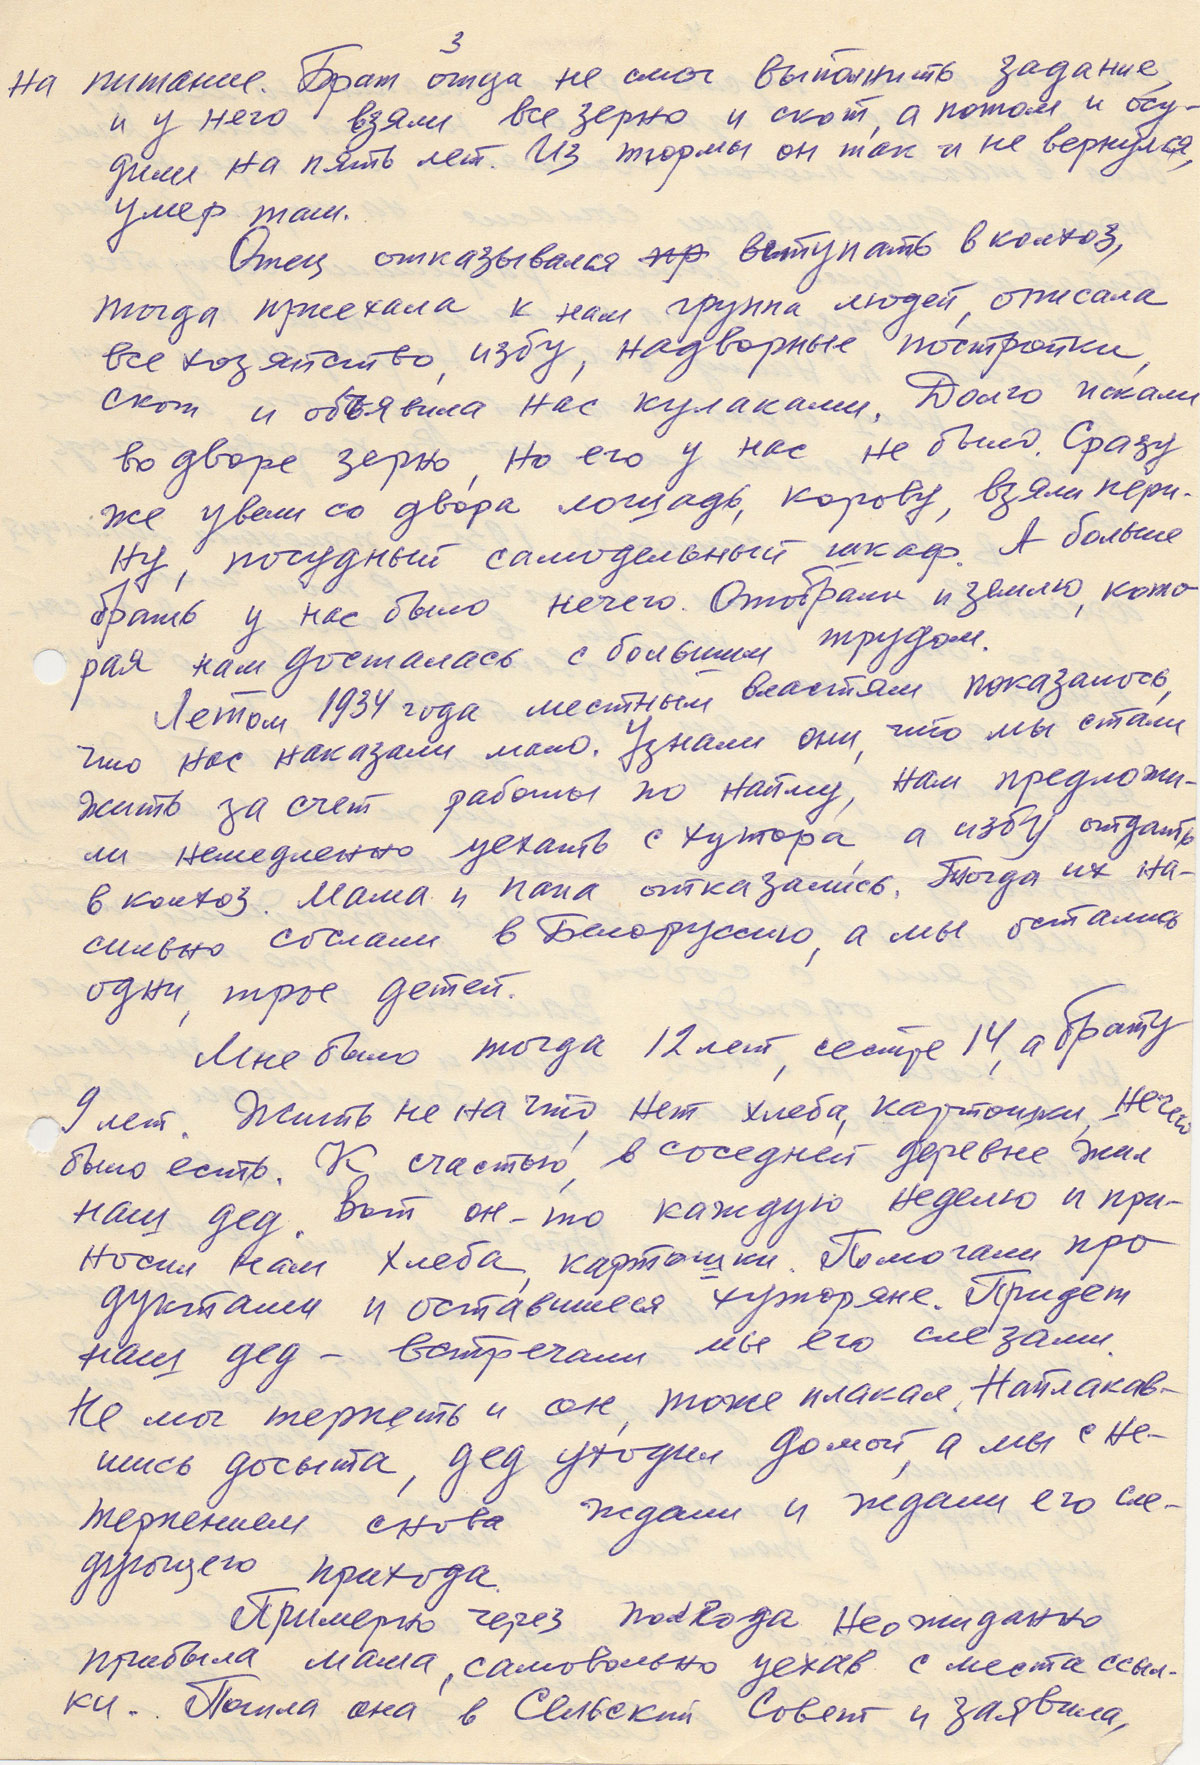 3
на питание. Брат отца не смог выполнить задание,
и у него взяли все зерно и скот, а потом и осу-
дили на пять лет. Из тюрмы он так и не вернулся,
умер там.
Отец отказывался пр вступать в колхоз,
тогда приехала к нам группа людей, описала
все хозяйство, избу, надворные постройки,
скот и объявила нас кулаками. Долго искали
во дворе зерно, но его у нас не было. Сразу
же увели со двора лошадь, корову, взяли пери-
ну, посудный самодельный шкаф. А больше
брать у нас было нечего. Отобрали и землю, кото
рая нам досталась с большим трудом.
Летом 1934 года местным властям показалось,
что нас наказали мало. Узнали они, что мы стали
жить за счет работы по найму, нам предложи-
ли немедленно уехать с хутора, а избу отдать
в колхоз. Мама и папа отказались. Тогда их на-
сильно сослали в Белоруссию, а мы остались
одни, трое детей.
Мне было тогда 12 лет, сестре 14, а брату
9 лет. Жить не на что, нет хлеба, картошки, нечего
было есть. К счастью, в соседней деревне жил
наш дед. Вот он-то каждую неделю и при-
носил нам хлеба, картошки. Помогали про
дуктами и оставшиеся хуторяне. Придет
наш дед – встречали мы его слезами.
Не мог терпеть и он, тоже плакал. Наплакав-
шись досыта, дед уходил домой, а мы с не-
терпением снова ждали и ждали его сле-
дующего прихода.
Примерно через полгода неожиданно
прибыла мама, самовольно уехав с места ссыл-
ки. Пошла она в Сельский Совет и заявила,